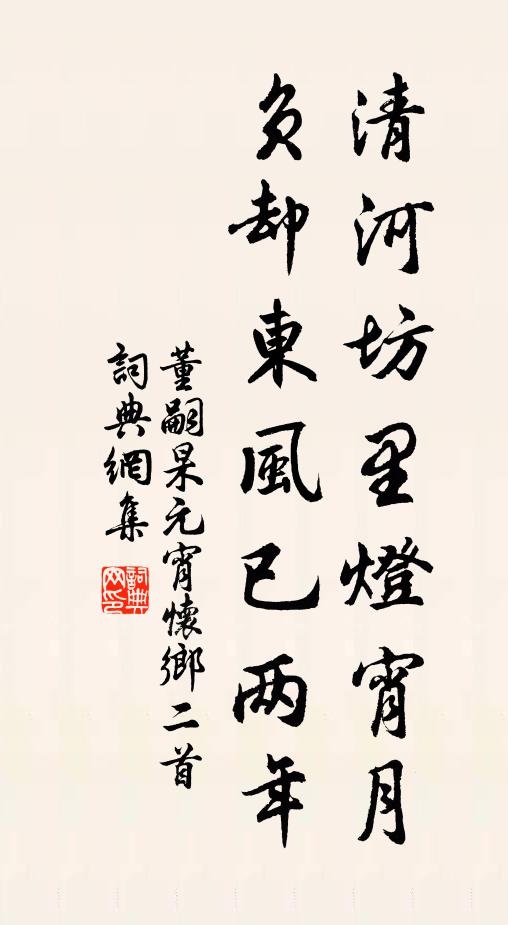 清河坊里燈宵月
負却東風已两年
董嗣杲元宵懷鄉二首
詞典網集
詞典
网印